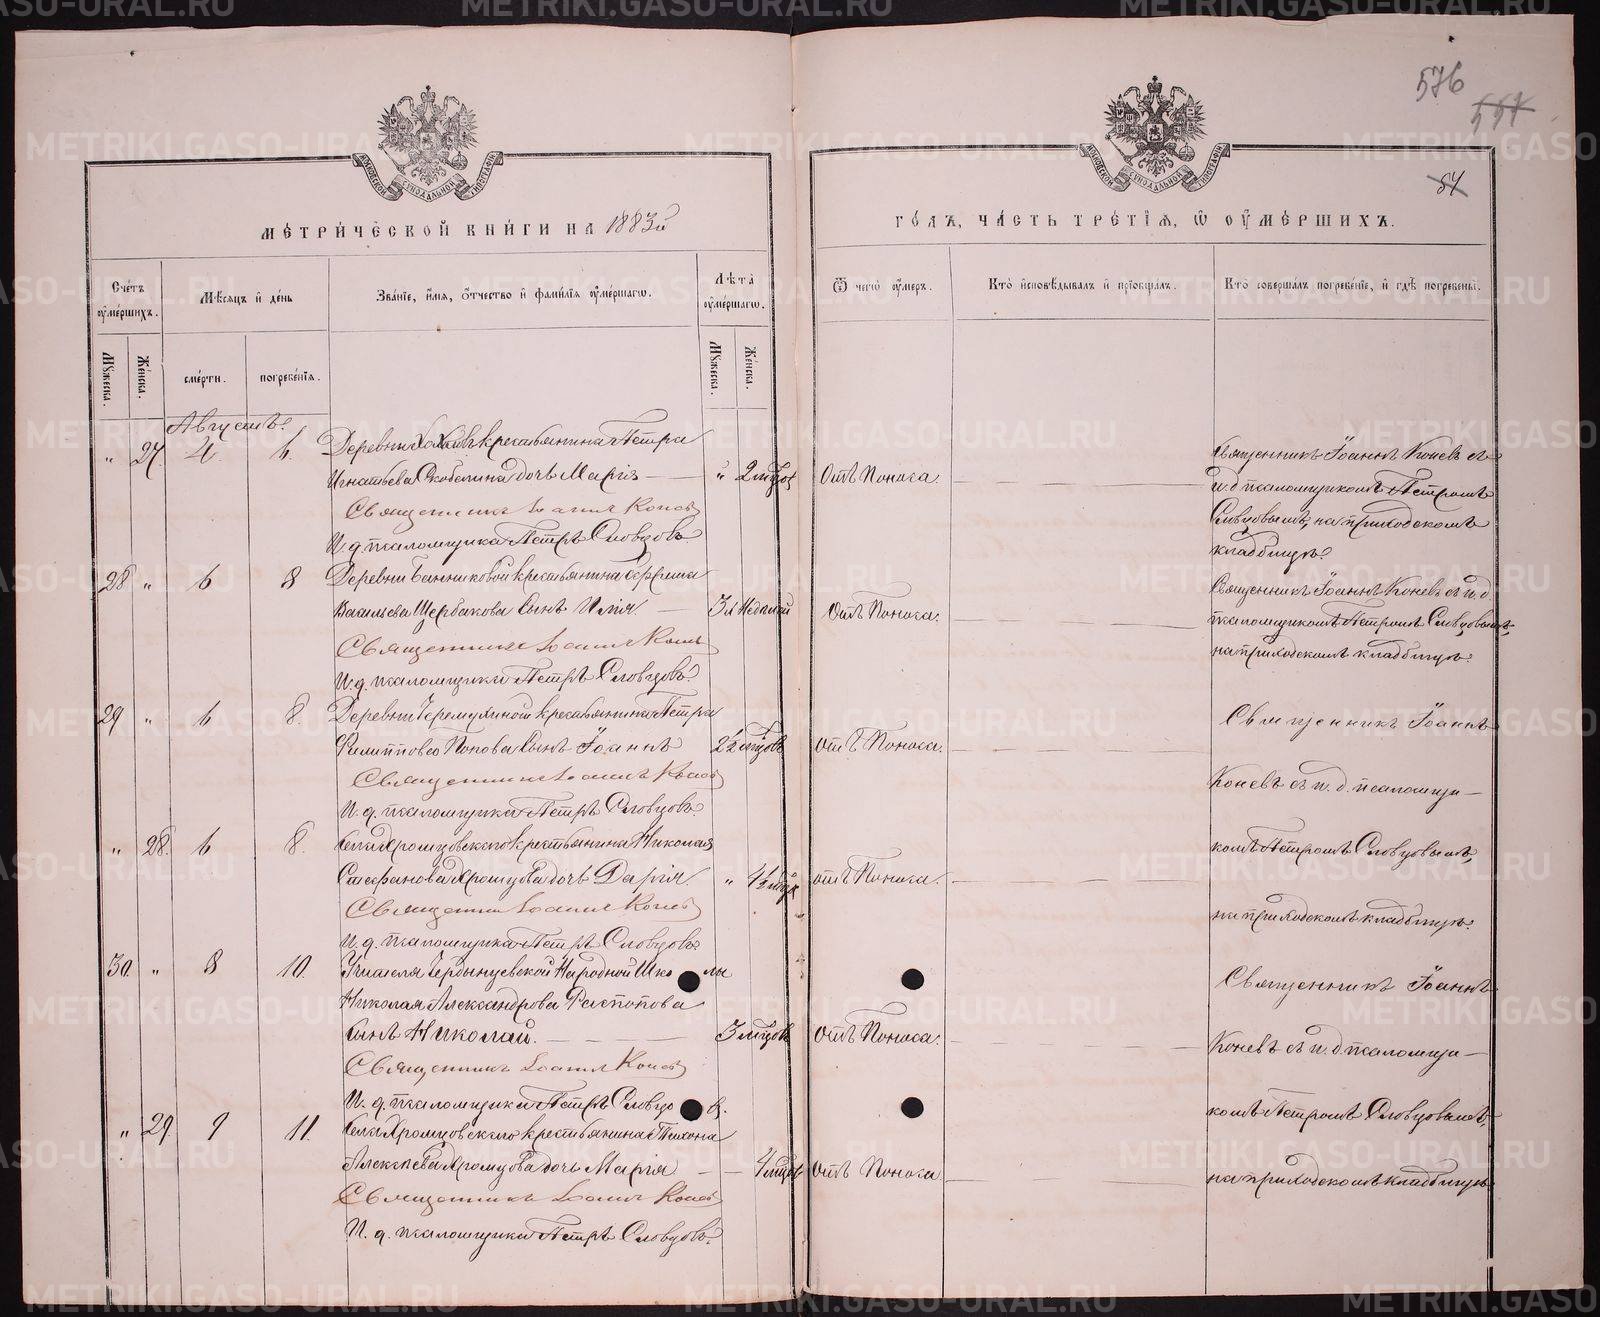 576
557
54
МЕТРИЧЕСКОЙ КНИГИ НА 1883й
ГОДЪ, ЧАСТЬ ТРЕТІЯ, Ѿ ОУМЕРШИХЪ.
Счетъ оумершихъ.
Мѣсяцъ и день
Званіе, имя, отчество и фамилія оумершагѡ.
Лѣта оумершагѡ.
Ѿ чегѡ оумеръ.
Кто исповѣдывалъ и пріобщалъ.
Кто совершалъ погребеніе, и гдѣ погребены.
Мужеска.
Женска.
смерти.
погребенія.
Мужеска.
Женска.
Августъ.
„ 27. 4. 6. Деревни крестьянина Петра
Игнатьева Скобелина дочь Марія „ 2 мѣсяц Отъ Поноса.
Священникъ Іоаннъ Коневъ
И. д. псаломщика Петръ Словцовъ.
Священникъ Іоаннъ Коневъ съ
и. д. псаломщикомъ Петромъ
Словцовымъ, на приходскомъ
кладбищѣ.
28 „ 6 8 Деревни Банниковой крестьянина Ефрема
Васильева Щербакова сынъ Илія 3х Недѣлей Отъ Поноса.
Священникъ Іоаннъ Коневъ
И. д. псаломщика Петръ Словцовъ.
Священникъ Іоаннъ Коневъ съ и. д.
псаломщикомъ Петромъ Словцовымъ,
на приходскомъ кладбищѣ.
29 „ 6 8. Деревни Черемухиной крестьянина Петра
Филиппова Попова сынъ Іоаннъ 2½ мѣсяцовъ отъ Поноса.
Священникъ Іоаннъ Коневъ
И. д. псаломщика Петръ Словцовъ.
Священникъ Іоаннъ
Коневъ съ и. д. псаломщи-
„ 28. 6 8. Села Хромцовскаго крестьянина Николая
Стефанова Хромцова дочь Дарія. „ 4½ отъ Поноса.
Священникъ Іоаннъ Коневъ
И. д. псаломщика Петръ Словцовъ.
комъ Петромъ Словцовымъ,
на приходскомъ кладбищѣ.
30. „ 8 10. Учителя Народной Школы
Николая Александрова Распопова
сынъ Николай. 3 мѣсяцовъ Отъ Поноса.
Священникъ Іоаннъ Коневъ
И. д. псаломщика Петръ Словцовъ.
Священникъ Іоаннъ
Коневъ съ и. д. псаломщи-
„ 29. 9 11. Села Хромцовскаго крестьянина Тихона
Алексѣева Хромцова дочь Марія 4 мѣсяцовъ Отъ Поноса
Священникъ Іоаннъ Коневъ
И. д. псаломщика Петръ Словцовъ.
комъ Петромъ Словцовымъ,
на приходскомъ кладбищѣ.
METRIKI.GASO-URAL.RU